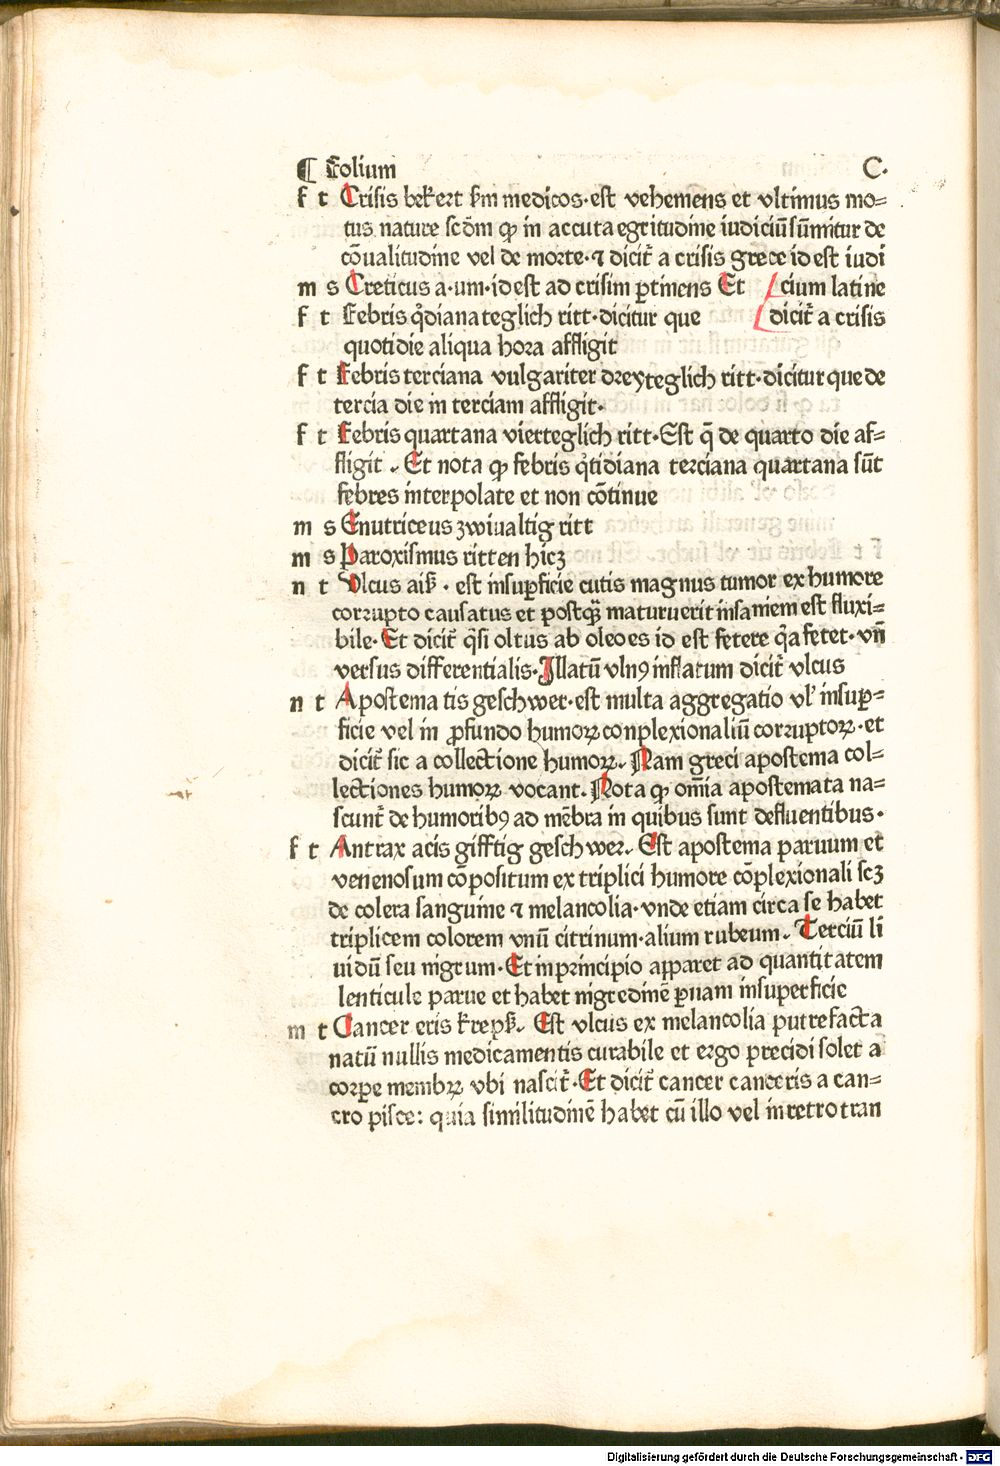 ¶ Folium C.
f t Crisis bekert ẜm medicos·est vehemens et vltimus mo=
tus nature scd̄m ꝙ in accuta egritudine iudiciū sūmitur de
cōualitudine vel de morte·⁊ dicit̄ a crisis grece id est iudi
m s Creticus a·um·id est ad crisim ꝑtinens Et cium latine
f t Febris q̄diana teglich ritt·dicitur que dicit̄ a crisis
quotidie aliqua hora affligit
f t Febris terciana vulgariter dreyteglich ritt·dicitur que de
tercia die in terciam affligit·
f t Febris quartana vierteglich ritt·Est q̄ de quarto die af=
fligit. Et nota ꝙ febris q̄tidiana terciana quartana sūt
febres interpolate et non cōtinue
m s Enutriceus zwiualtig ritt
m s Paroxismus ritten hicz
n t Vlcus aiß · est insuꝑficie cutis magnus tumor ex humore
corrupto causatus et postq̄ maturuerit insaniem est fluxi=
bile·Et dicit̄ q̄si oltus ab oleo es id est fetere q̄a fetet·vn̄
versus differentialis·Illatū vlnꝰ inflatum dicit̄ vlcus
n t Apostema tis geschwer·est multa aggregatio vl̓ insuꝑ=
ficie vel in ꝓfundo humoꝝ conplexionaliū corruptoꝝ·et
dicit̄ sic a collectione humoꝝ. Nam greci apostema col=
lectiones humoꝝ vocant. Nota ꝙ om̄ia apostemata na=
scunt̄ de humoribꝰ ad mēbra in quibus sunt defluentibus·
f t Antrax acis gifftig geschwer. Est apostema paruum et
venenosum cōpositum ex triplici humore cōplexionali scꝫ
de colera sanguine ⁊ melancolia·vnde etiam circa se habet
triplicem colorem vnū citrinum·alium rubeum. Terciū li
uidū seu nigrum·Et in principio apparet ad quantitatem
lenticule parue et habet nigredinē ꝑuam insuperficie
m t Cancer eris krepß. Est vlcus ex melancolia putrefacta
natū nullis medicamentis curabile et ergo precidi solet a
corpe membꝝ vbi nascit̄·Et dicit̄ cancer canceris a can=
cro pisce: quia similitudinē habet cū illo vel in retro tran
Digitalisierung gefördert durch die Deutsche Forschungsgemeinschaft · DFG